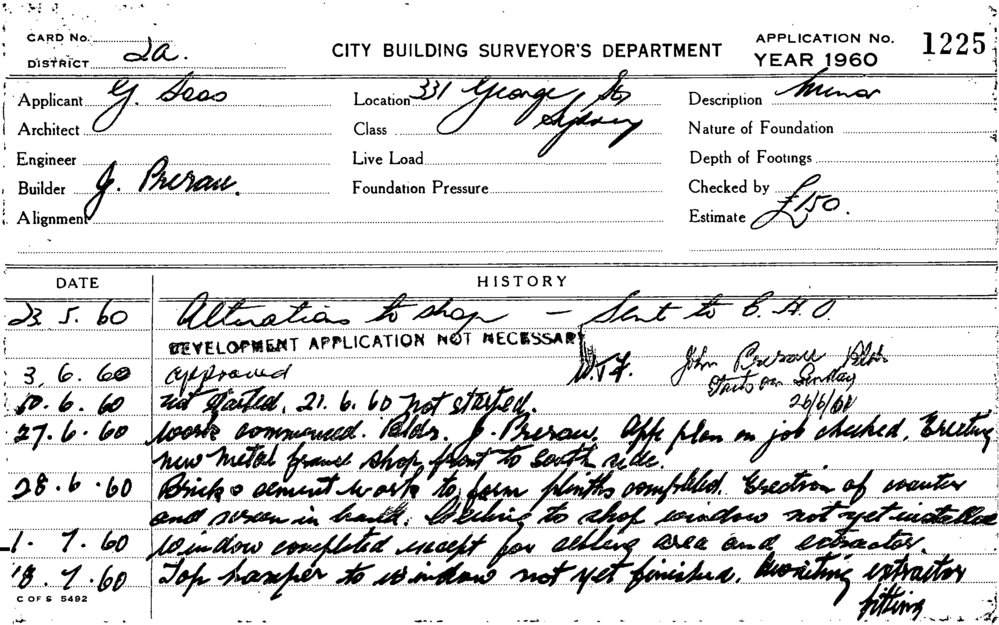 CARD No.
DISTRICT 2a.
CITY BUILDING SURVEYOR'S DEPARTMENT
APPLICATION No. 1225
YEAR 1960
Applicant G.
Location 331 George St
Sydney
Description Minor
Architect
Class
Nature of Foundation
Engineer
Live Load
Depth of Footings
Builder J. Prerau.
Foundation Pressure
Checked by
Alignment
Estimate £150.
DATE
HISTORY
23.5.60 Alterations to shop - Sent to C.H.O.
DEVELOPMENT APPLICATION NOT NECESSARY
3.6.60 approved
John Prerau Bldr
Starts on Sunday
26/6/60
20.6.60 not started. 21.6.60 not started.
27.6.60 Work commenced. Bldr. J. Prerau. App plan on job checked. Erecting
new metal frame shop front to south side.
28.6.60 Brick & cement work to form plinths completed. Erection of counter
and screen in hand. Ceiling to shop window not yet installed
1.7.60 Window completed except for ceiling area and extractor.
18.7.60 Top hamper to window not yet finished. Awaiting extractor
fitting
C OF S 5492